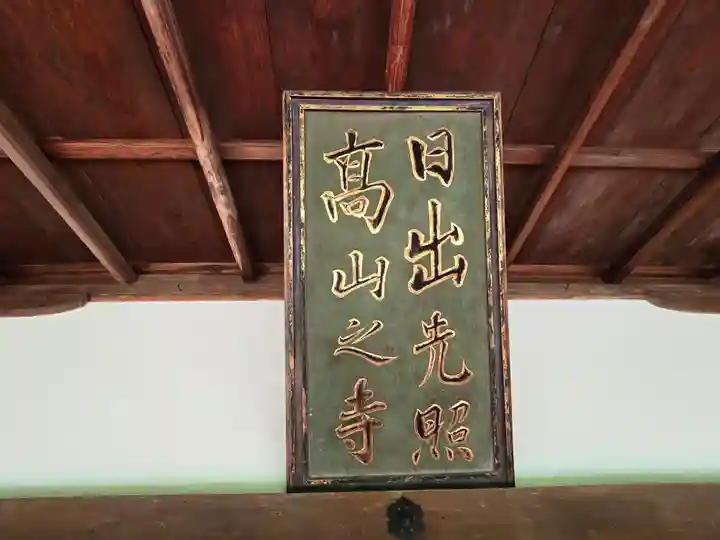 日出先照
高山之寺